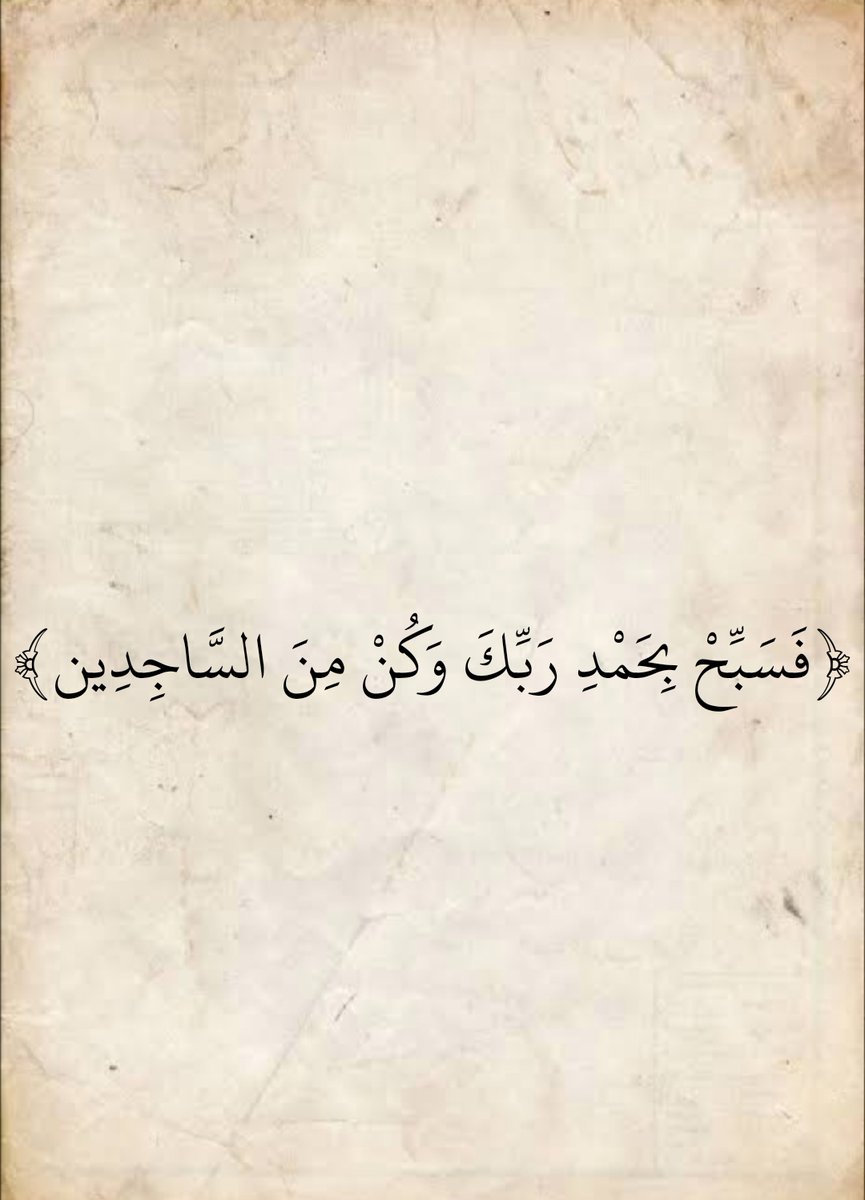 ﴿فَسَبِّحْ بِحَمْدِ رَبِّكَ وَكُنْ مِنَ السَّاجِدِين﴾